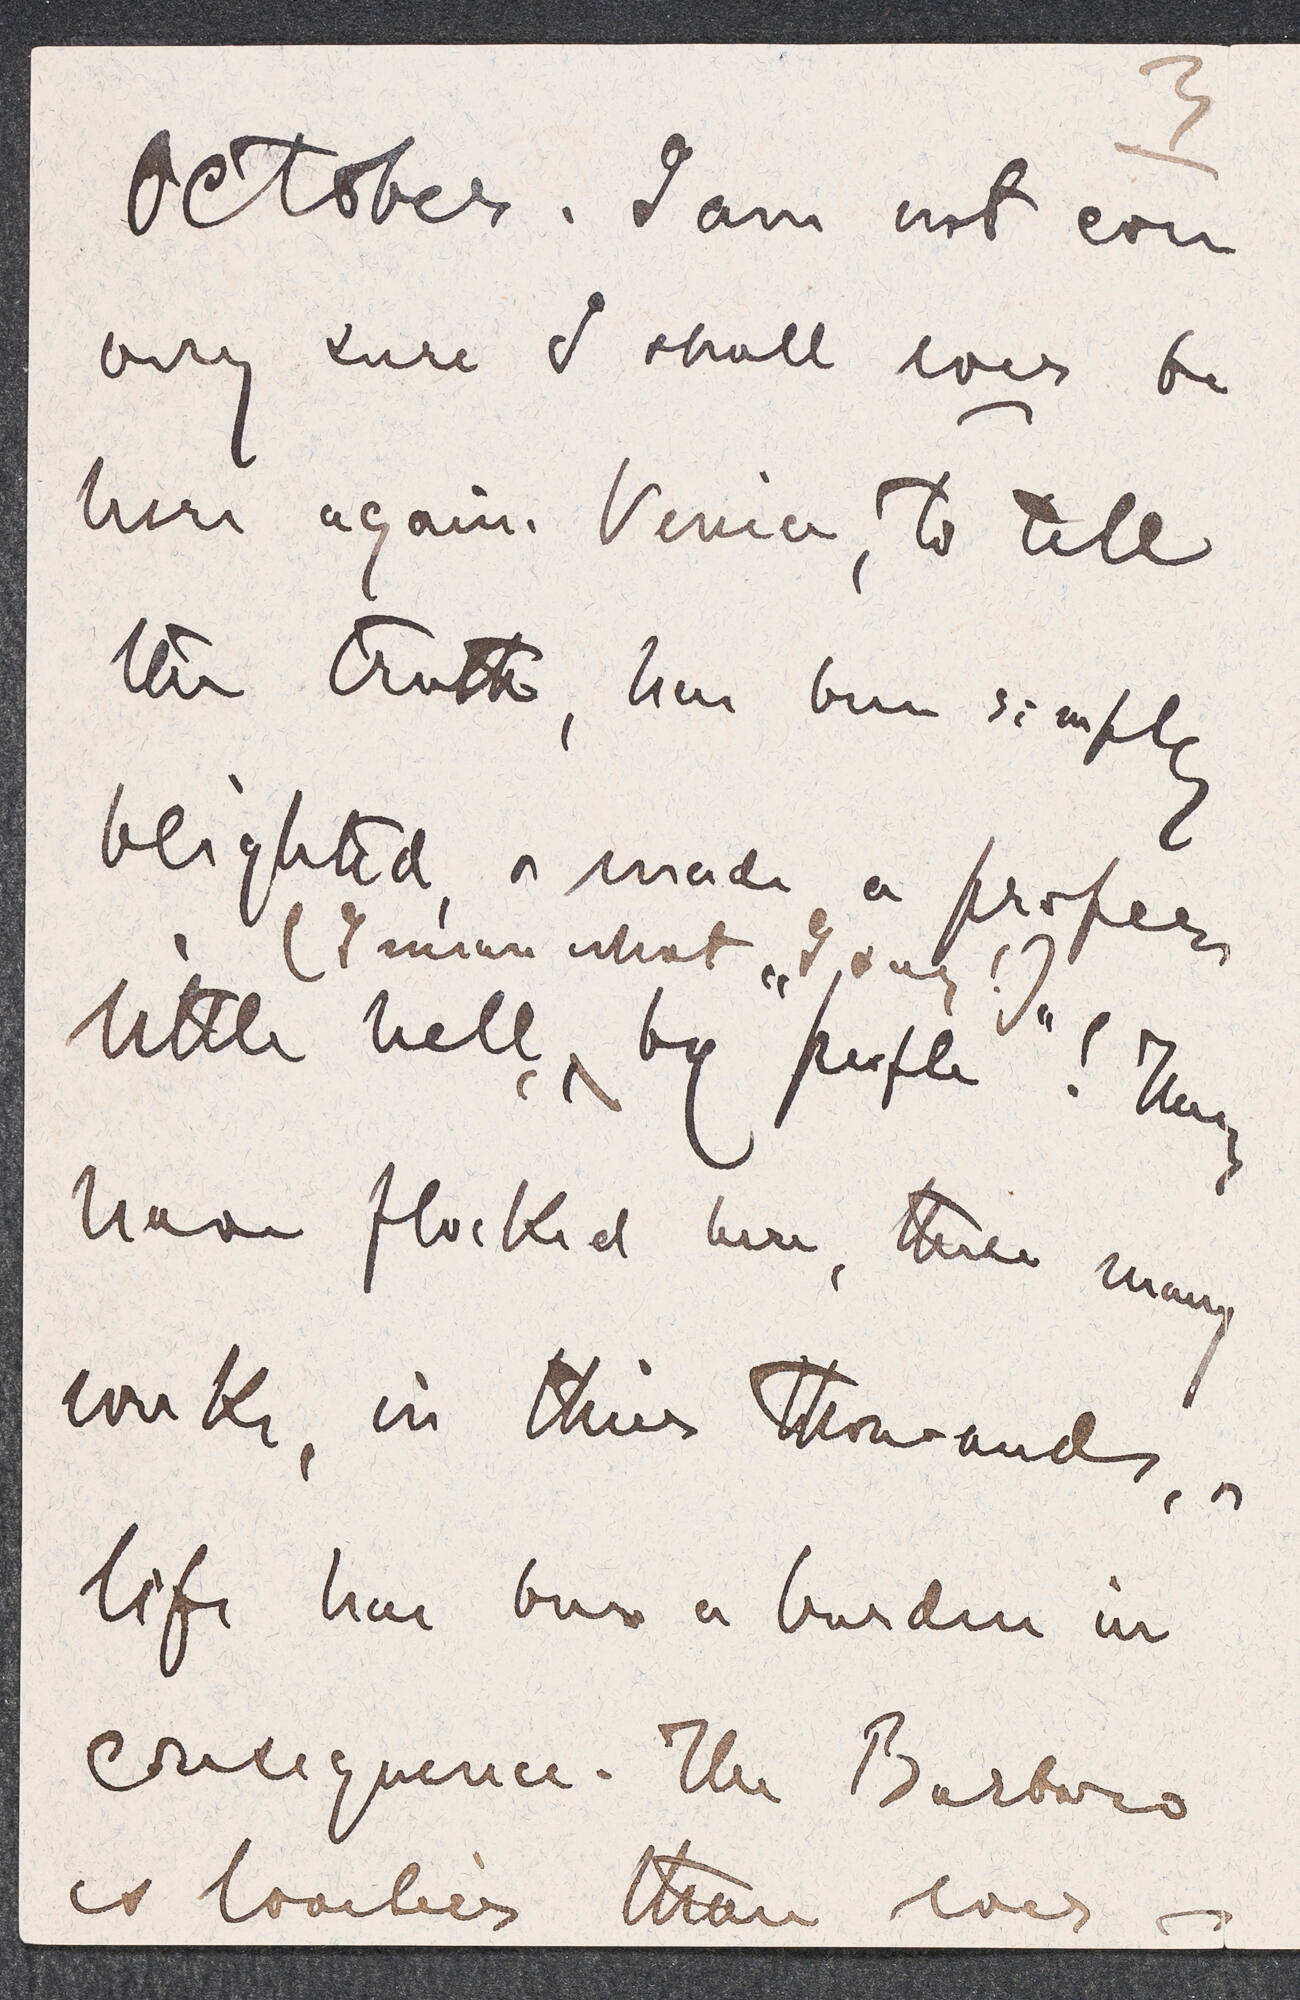 3
October. I am not even
very sure I shall ever be
here again. Venice, to tell
the truth, has been simply
blighted, & made a proper
(I mean what I say!)
little hell, by "people"! They
have flocked here, these many
weeks, in their thousands, &
life has been a burden in
consequence. The Barbaro
is lovelier than ever —